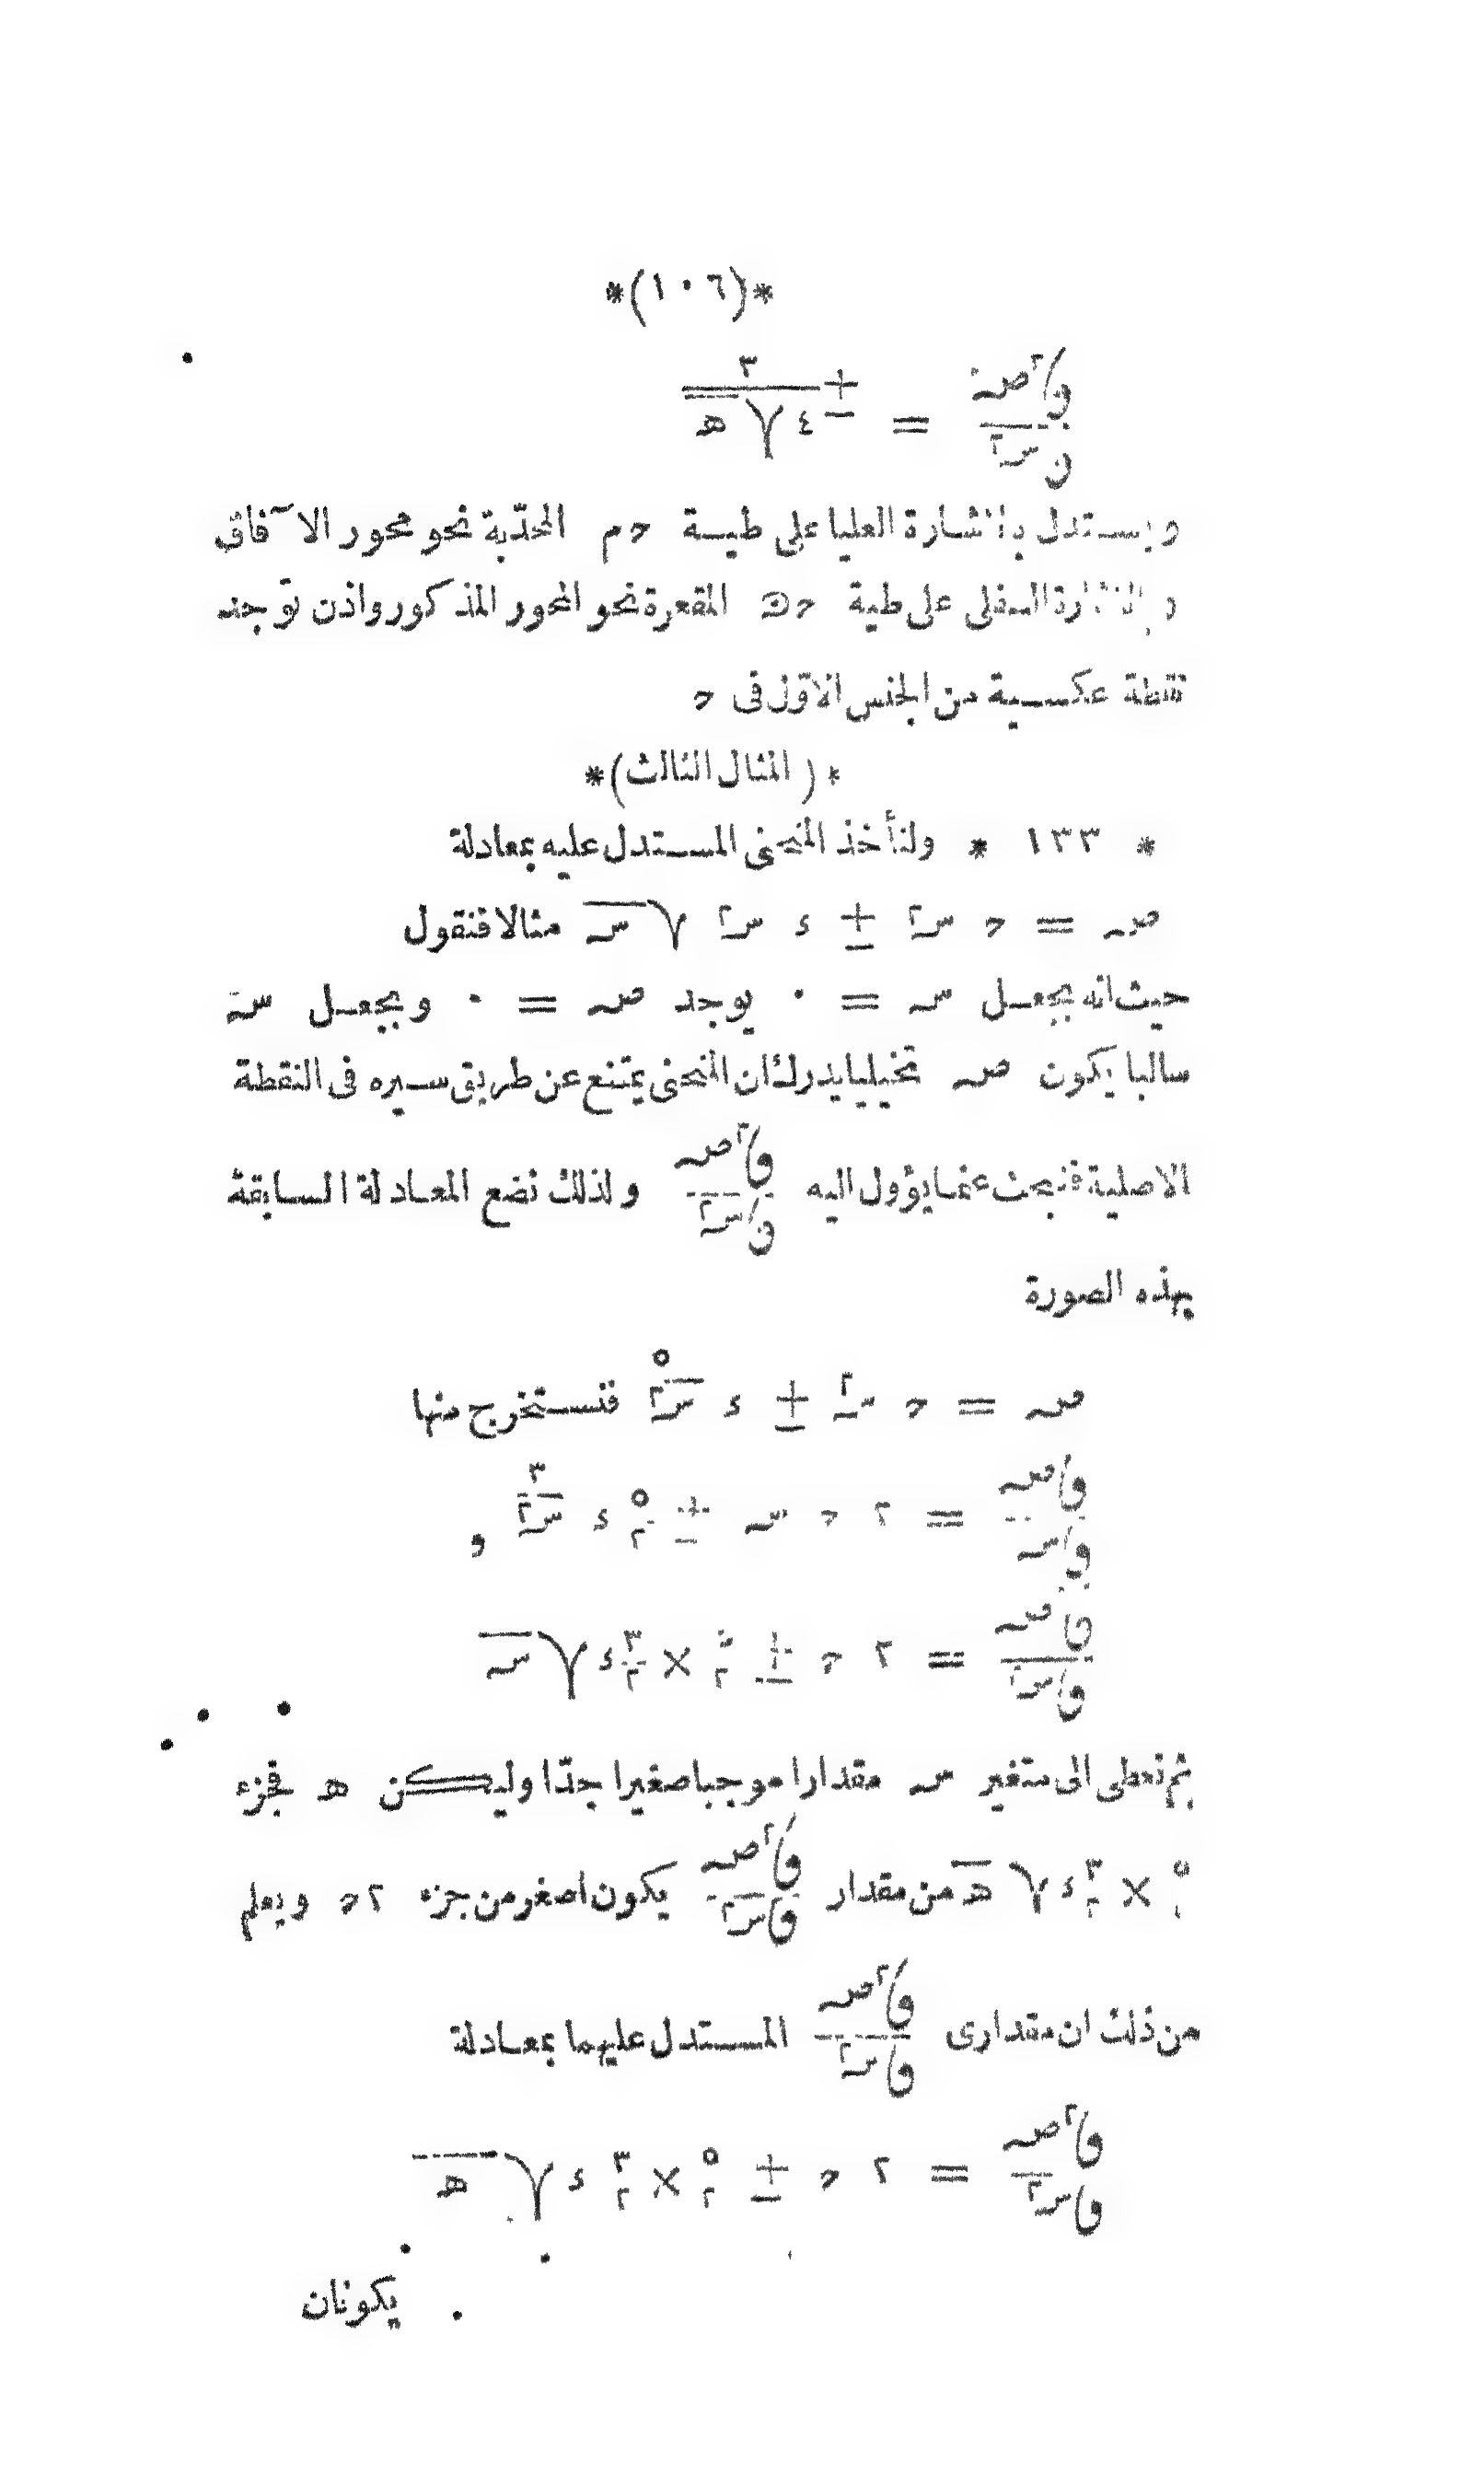 *(١٠٦)*
و٢صہ / و سہ٢ = ± ٣ / ٤ √هـ
ويستدل بالاشارة العليا على طيــة حم المحدّبة نحو محور الآفاق
وبالاشارة السفلى على طية حھ المقعرة نحو المحور المذكور واذن توجد
نقطة عكسية من الجنس الاوّل فى ح
*(المثال الثالث)*
* ١٣٣ * ولنأخذ المنحنى المستدل عليه بمعادلة
صہ = ح سہ٢ ± ء سہ٢ √سہ مثالا فنقول
حيث انه بجعل سہ = ٠ يوجد صہ = ٠ وبجعل سہ
سالبا يكون صہ تخيليا يدرك ان المنحنى يمتنع عن طريق سيره فى النقطة
الاصلية فنبحث عما يؤول اليه و٢صہ / و سہ٢ ولذلك نضع المعادلة السابقة
بهذه الصورة
صہ = ح سہ٢ ± ء سہ ٥/٢ فنستخرج منها
و صہ / و سہ = ٢ ح سہ ± ٥/٢ ء سہ ٣/٢ و
و صہ / و سہ٢ = ٢ ح ± ٥/٢ × ٣/٢ ء √سہ
ثم تعطى الى متغير سہ مقدارا موجبا صغيرا جدّا وليكن هـ فجزء
٥/٢ × ٣/٢ ء √هـ من مقدار و٢صہ / و سہ٢ يكون اصغر من جزء ٢ح ويعلم
من ذلك ان مقدارى و٢صہ / و سہ٢ المستدل عليهما بمعادلة
و٢صہ / و سہ٢ = ٢ ح ± ٥/٢ × ٣/٢ ء √هـ
يكونان